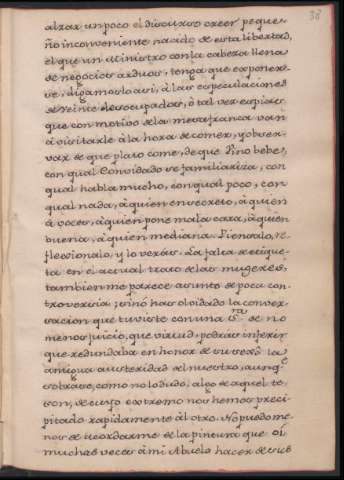 38
alzar un poco el discurso creer peque-
ño inconveniente nacido de esta libertad,
el que un Ministro con la cabeza llena
de negocios arduos, tenga que exponer-
se, digamoslo asi, à las especulaciones
de veinte desocupados, ò tal vez espias
que con motivo de la mesa franca van
à visitarle à la hora de comer, y obser-
var de que plato come, de que Vino bebe,
con qual Convidado se familiariza, con
qual habla mucho, con qual poco, con
qual nada, à quien en secreto, à quien
à voces, à quien pone mala cara, à quien
buena, à quien mediana. Piensalo, re-
flexionalo, y lo veràs. La falta de etique-
ta en el actual trato de las mugeres,
tambien me parece asunto de poca con-
troversia; si no has olvidado la conver-
sacion que tuviste con una S.ra de no
menos juicio, que virtud, podràs inferir
que redundaba en honor de su sexo la
antigua austeridad del nuestro, aunq.e
sobrase, como no lo dudo, algo de aquel te-
son, de cuyo extremo nos hemos preci-
pitado rapidamente al otro. No puedo me-
nos de acordarme de la pintura que oí
muchas veces à mi Abuelo hacer de sus